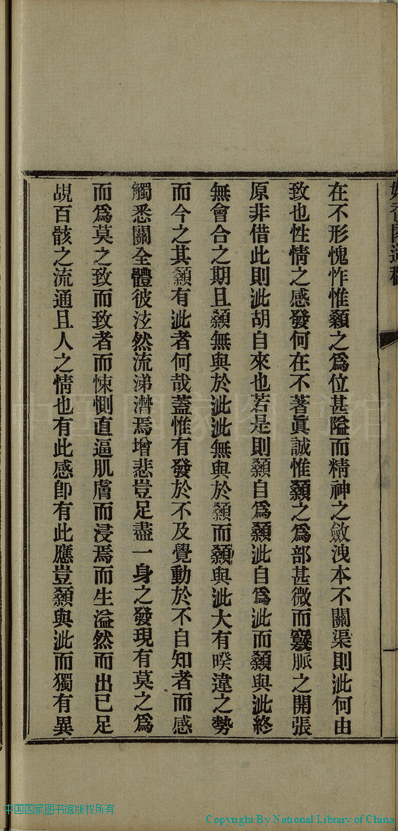 在不形愧怍惟顙之爲位甚隘而精神之斂洩本不關渠則泚何由
致也性情之感發何在不著眞誠惟顙之爲部甚微而竅脈之開張
原非借此則泚胡自來也若是則顙自爲顙泚自爲泚而顙與泚終
無會合之期且顙無與於泚泚無與於顙而顙與泚大有暌違之勢
而今之其顙有泚者何哉蓋惟有發於不及覺動於不自知者而感
觸悉關全體彼泫然流涕潸焉增悲豈足盡一身之發現有莫之爲
而爲莫之致而致者而悚惻直逼肌膚而浸焉而生溢然而出已足
覘百骸之流通且人之情也有此感卽有此應豈顙與泚而獨有異
中国国家图书馆版权所有
Copyright By National Library of China